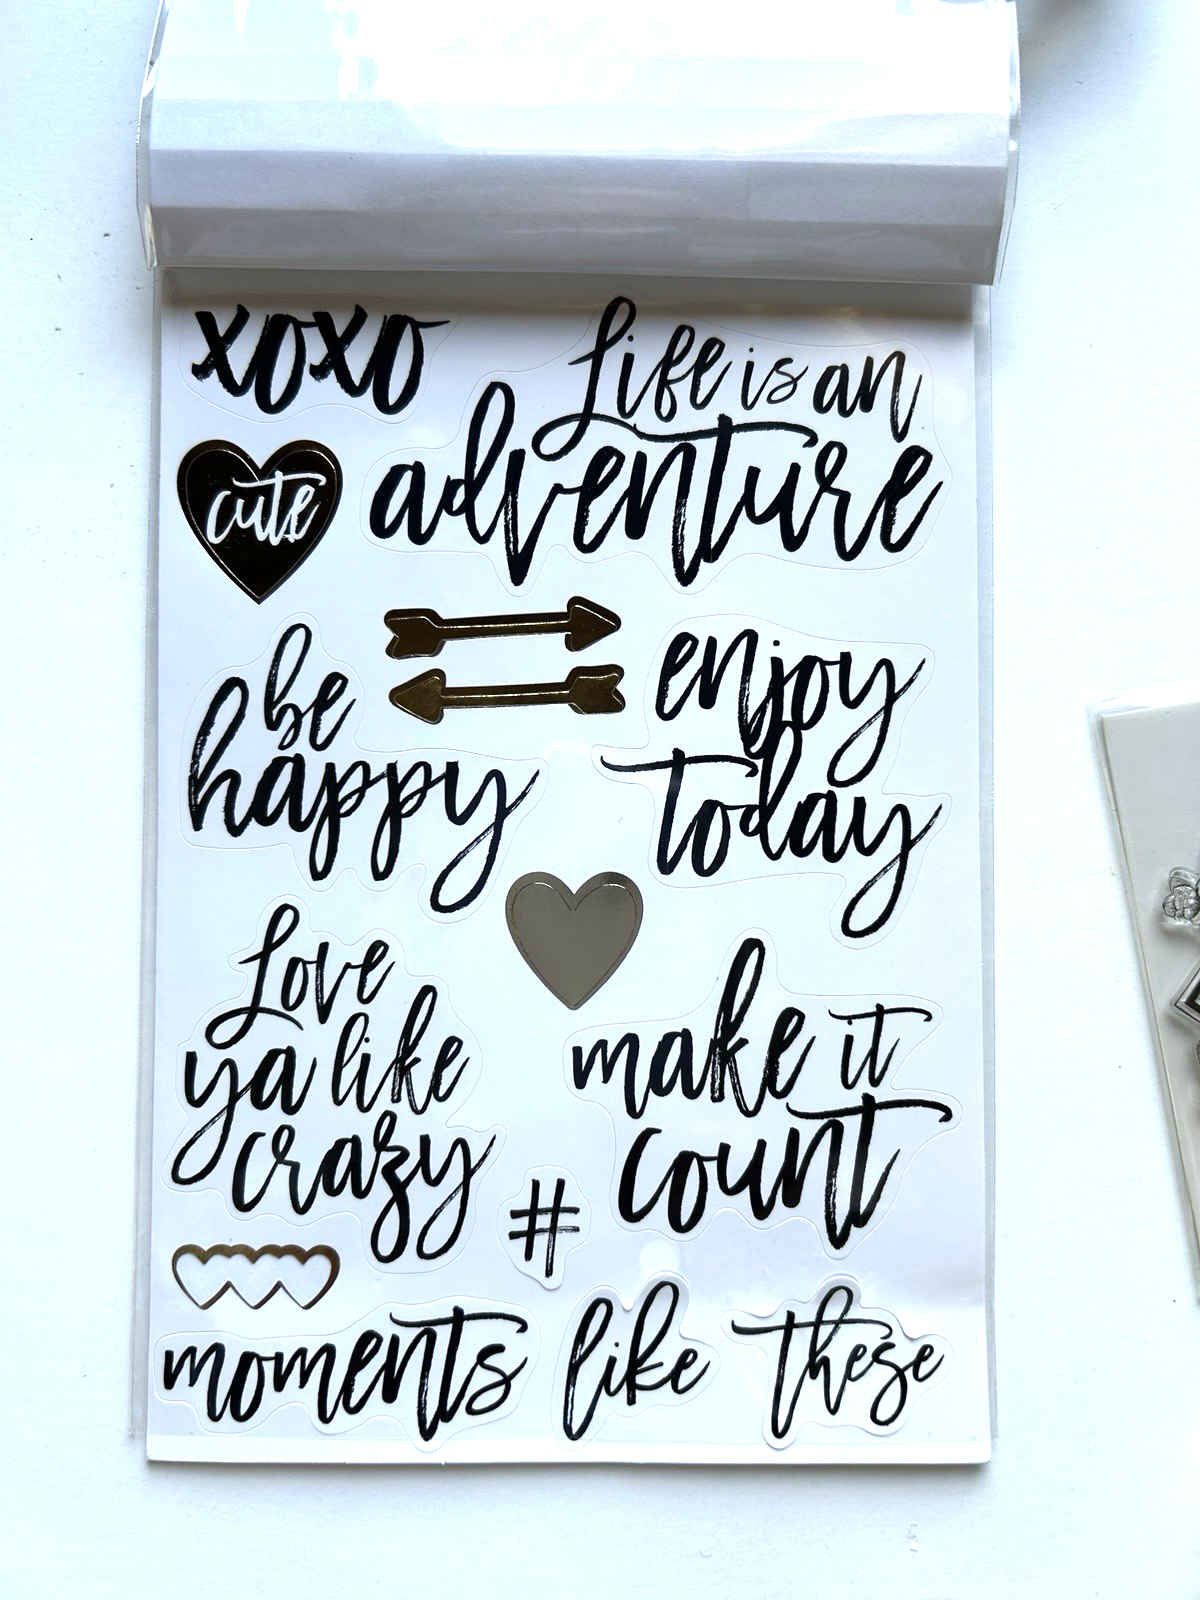 xoxo
Life is an
adventure
cute
be
happy
enjoy
today
Love
ya like
crazy
make it
count
#
moments like these